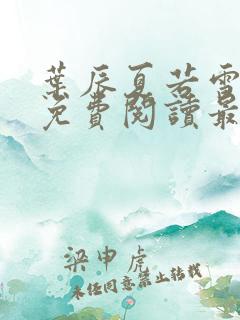 葉辰夏若雪
免費閱讀最
梁申虎
未任同意禁止转载